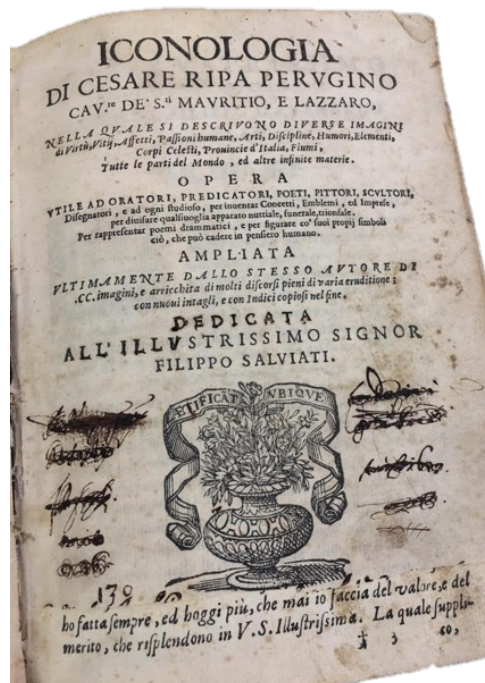 ICONOLOGIA
DI CESARE RIPA PERVGINO
CAV.re DE' S.ti MAVRITIO, E LAZZARO,
NELLA QVALE SI DESCRIVONO DIVERSE IMAGINI
di Virtù, Vitij, Affetti, Passioni humane, Arti, Discipline, Humori, Elementi,
Corpi Celesti, Prouincie d'Italia, Fiumi,
Tutte le parti del Mondo, ed altre infinite materie.
OPERA
VTILE AD ORATORI, PREDICATORI, POETI, PITTORI, SCVLTORI,
Disegnatori, e ad ogni studioso, per inuentar Concetti, Emblemi, ed Imprese,
per diuisare qualsiuoglia apparato nuttiale, funerale, trionfale.
Per rappresentar poemi drammatici, e per figurare co' suoi propij simboli
ciò, che può cadere in pensiero humano.
AMPLIATA
VLTIMAMENTE DALLO STESSO AVTORE DI
.CC. imagini, e arricchita di molti discorsi pieni di varia eruditione;
con nuoui intagli, e con Indici copiosi nel fine.
DEDICATA
ALL'ILLVSTRISSIMO SIGNOR
FILIPPO SALVIATI.
ETIFICAT VBIQVE
130
ho fatta sempre, ed hoggi più, che mai io faccia del valore, e del
merito, che risplendono in V. S. Illustrissima. La quale suppli-
‡ 3 co,